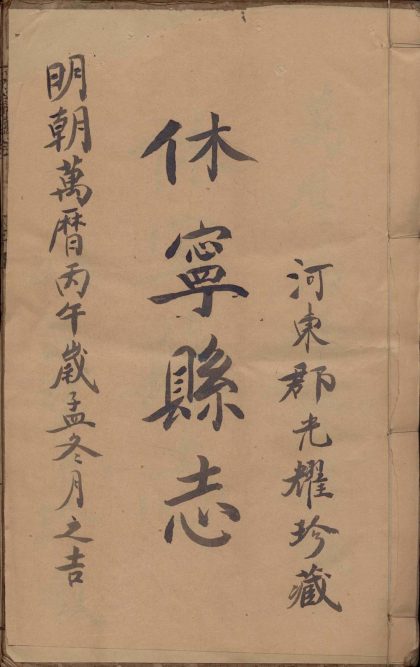 河東郡光耀珍藏
休寧縣志
明朝萬曆丙午歲孟冬月之吉